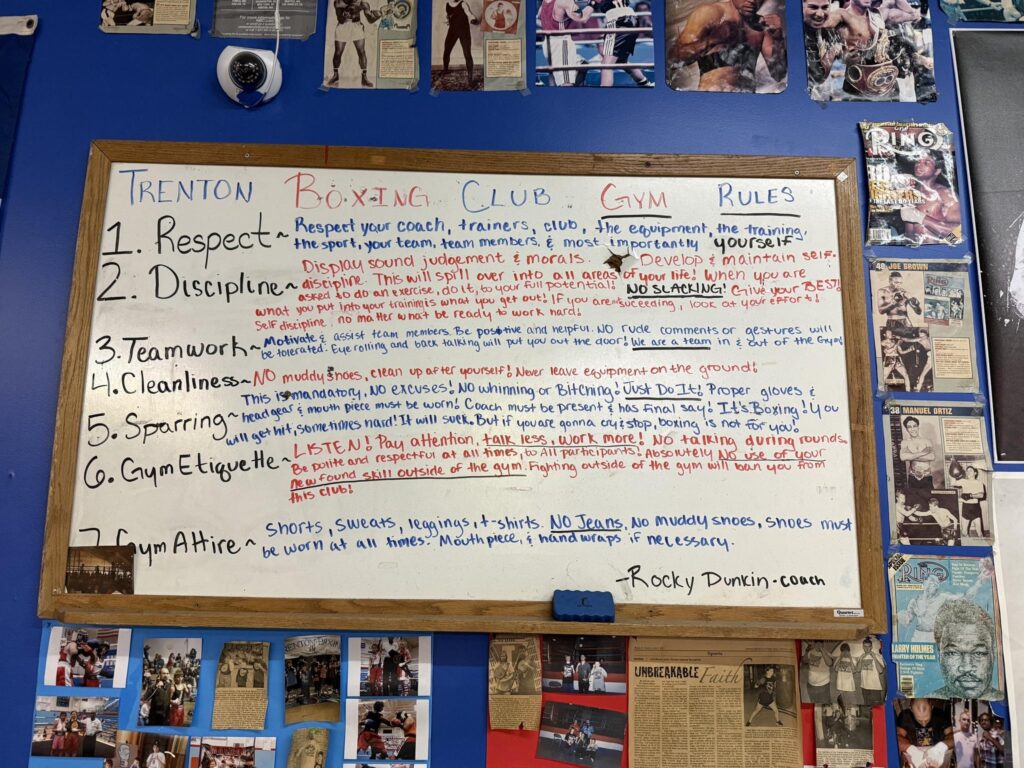 TRENTON BOXING CLUB GYM RULES
1. Respect~ Respect your coach, trainers, club, the equipment, the training,
the sport, your team, team members, & most importantly yourself
2. Discipline~ Display sound judgement & morals. Develop & maintain self-
discipline. This will spill over into all areas of your life! When you are
asked to do an exercise, do it, to your full potential! NO SLACKING! Give your BEST!
what you put into your training is what you get out! If you are suceeding, look at your effort!
Self discipline no matter what be ready to work hard!
3. Teamwork~ Motivate & assist team members. Be positive and helpful. NO rude comments or gestures will
be tolerated. Eye rolling and back talking will put you out the door! We are a team in & out of the Gym!
4. Cleanliness~ NO muddy shoes, clean up after yourself! Never leave equipment on the ground!
5. Sparring~ This is mandatory, NO excuses! NO whinning or Bitching! Just Do It! Proper gloves &
headgear & mouth piece must be worn! Coach must be present & has final say! It's Boxing! You
will get hit, sometimes hard! It will suck. But if you are gonna cry & stop, boxing is not for you!
6. Gym Etiquette~ LISTEN! Pay attention, talk less, work more! NO talking during rounds.
Be polite and respectful at all times, to All participants! Absolutely NO use of your
new found skill outside of the gym. Fighting outside of the gym will ban you from
this club!
7. Gym Attire~ shorts, sweats, leggings, t-shirts. NO Jeans, No muddy shoes, shoes must
be worn at all times. Mouth piece, & hand wraps if necessary.
-Rocky Dunkin - coach
Quartet
RING
40 JOE BROWN
38 MANUEL ORTIZ
RING
LARRY HOLMES
FIGHTER OF THE YEAR
Sports
UNBREAKABLE Faith